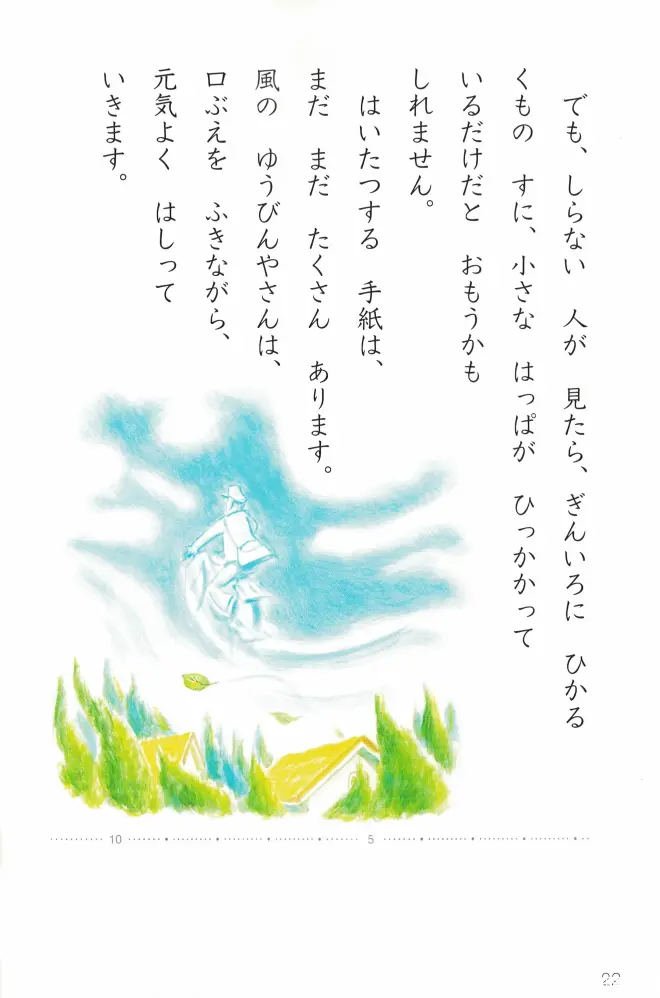 でも、しらない　人が　見たら、ぎんいろに　ひかる
くもの　すに、小さな　はっぱが　ひっかかって
いるだけだと　おもうかも
しれません。
はいたつする　手紙は、
まだ　まだ　たくさん　あります。
風の　ゆうびんやさんは、
口ぶえを　ふきながら、
元気よく　はしって
いきます。
5
10
22